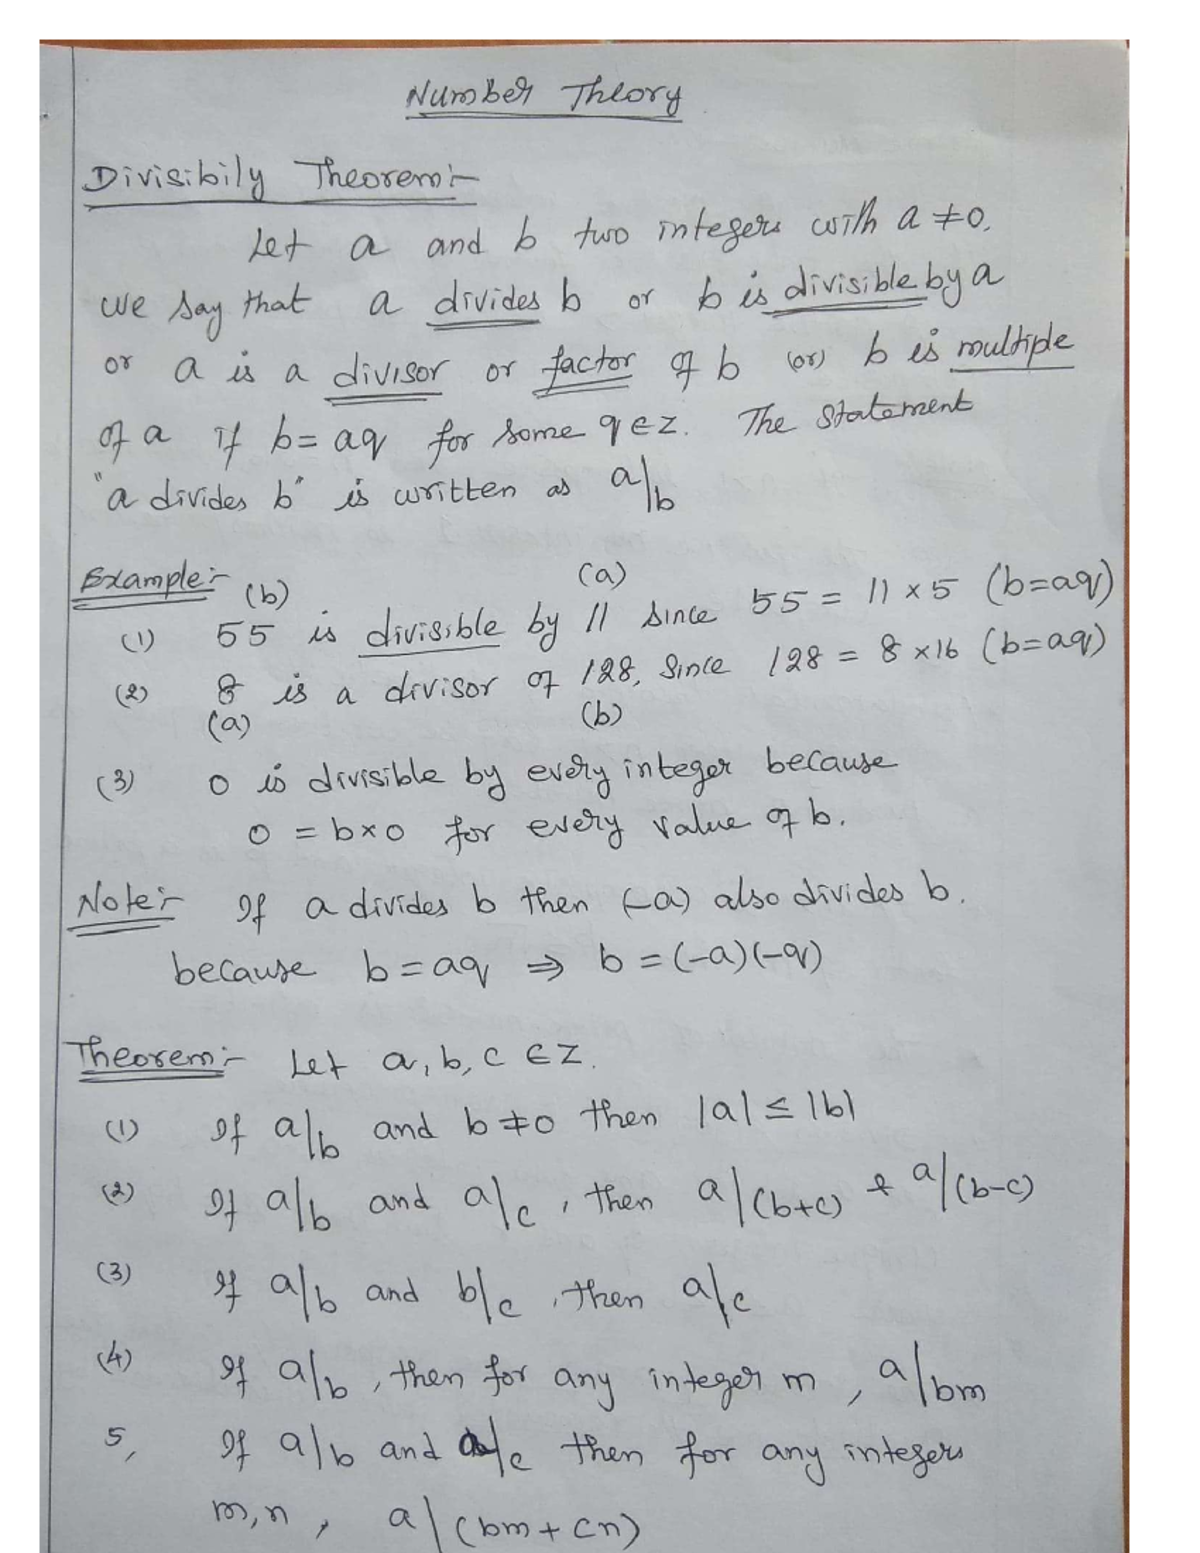 Number Theory
Divisibily Theorem:-
Let a and b two integers with a ≠ 0.
we say that a divides b or b is divisible by a
or a is a divisor or factor of b (or) b is multiple
of a if b = aq for some q ∈ Z. The statement
"a divides b" is written as a|b
Example:-
(b) (a)
(1) 55 is divisible by 11 since 55 = 11 × 5 (b=aq)
(2) 8 is a divisor of 128, Since 128 = 8 × 16 (b=aq)
(a) (b)
(3) 0 is divisible by every integer because
0 = b×0 for every value of b.
Note:- If a divides b then (-a) also divides b.
because b = aq ⇒ b = (-a)(-q)
Theorem:- Let a, b, c ∈ Z.
(1) If a|b and b ≠ 0 then |a| ≤ |b|
(2) If a|b and a|c, then a|(b+c) & a|(b-c)
(3) If a|b and b|c, then a|c
(4) If a|b, then for any integer m, a|bm
5, If a|b and a|c then for any integers
m, n, a|(bm + cn)